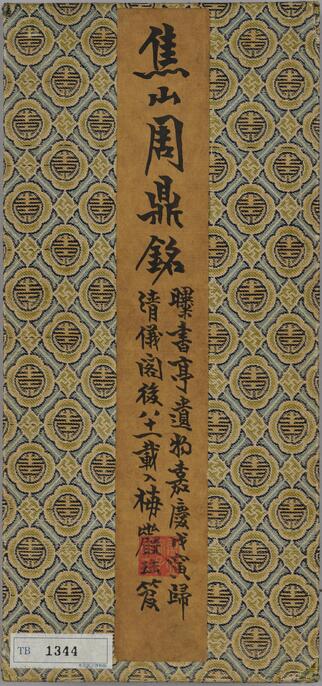 焦山周鼎銘
曝書亭遺物嘉慶戊寅歸
清儀閣後八十一載入梅巖笈
TB 1344